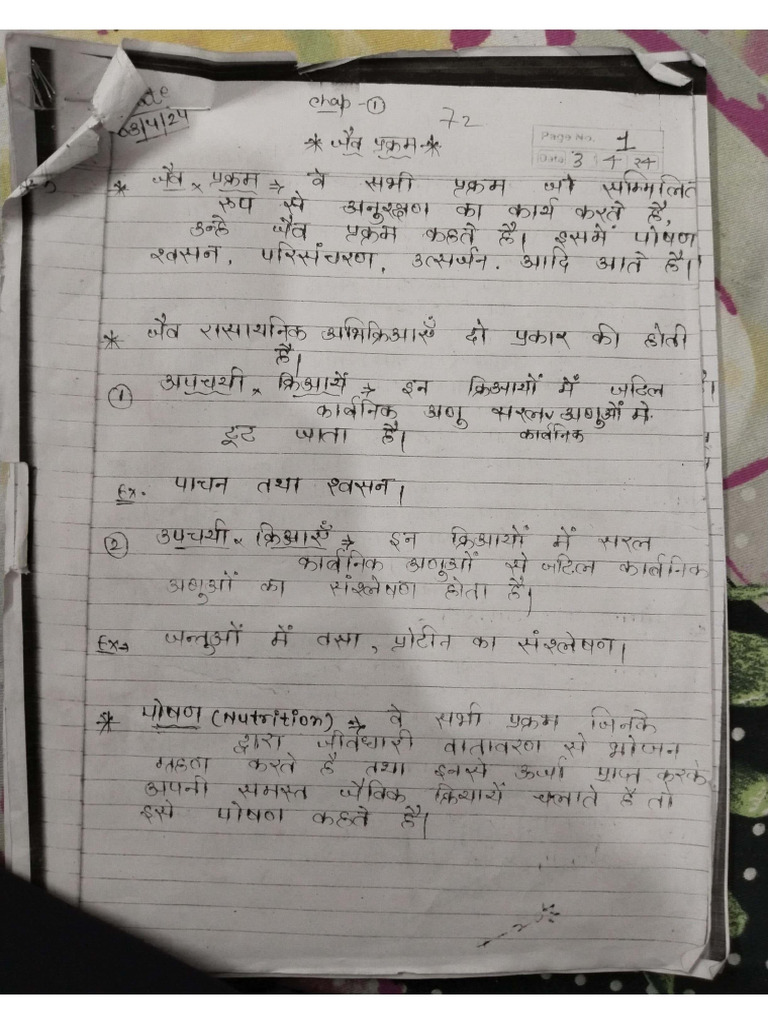 Date
03/4/24
Chap-①
72
Page No. 1
Date 3 4 24
* जैव प्रक्रम *
* जैव प्रक्रम → वे सभी प्रक्रम जो सम्मिलित
रूप से अनुरक्षण का कार्य करते है,
उन्हे जैव प्रक्रम कहते है। इसमें पोषण
श्वसन, परिसंचरण, उत्सर्जन, आदि आते है।
* जैव रासायनिक अभिक्रिआएँ दो प्रकार की होती
है।
① अपचयी क्रिआयें → इन क्रिआयों में जटिल
कार्बनिक अणु सरल अणुओं मे
कार्बनिक
टूट जाता है।
Ex. पाचन तथा श्वसन।
② उपचयी क्रिआएँ → इन क्रिआयों में सरल
कार्बनिक अणुओं से जटिल कार्बनिक
अणुओं का संश्लेषण होता है।
Ex→ जन्तुओं में वसा, प्रोटीन का संश्लेषण।
* पोषण (Nutrition) → वे सभी प्रक्रम जिनके
द्वारा जीवधारी वातावरण से भोजन
ग्रहण करते है तथा इनसे ऊर्जा प्राप्त करके
अपनी समस्त जैविक क्रियायें चलाते है तो
इसे पोषण कहते है।